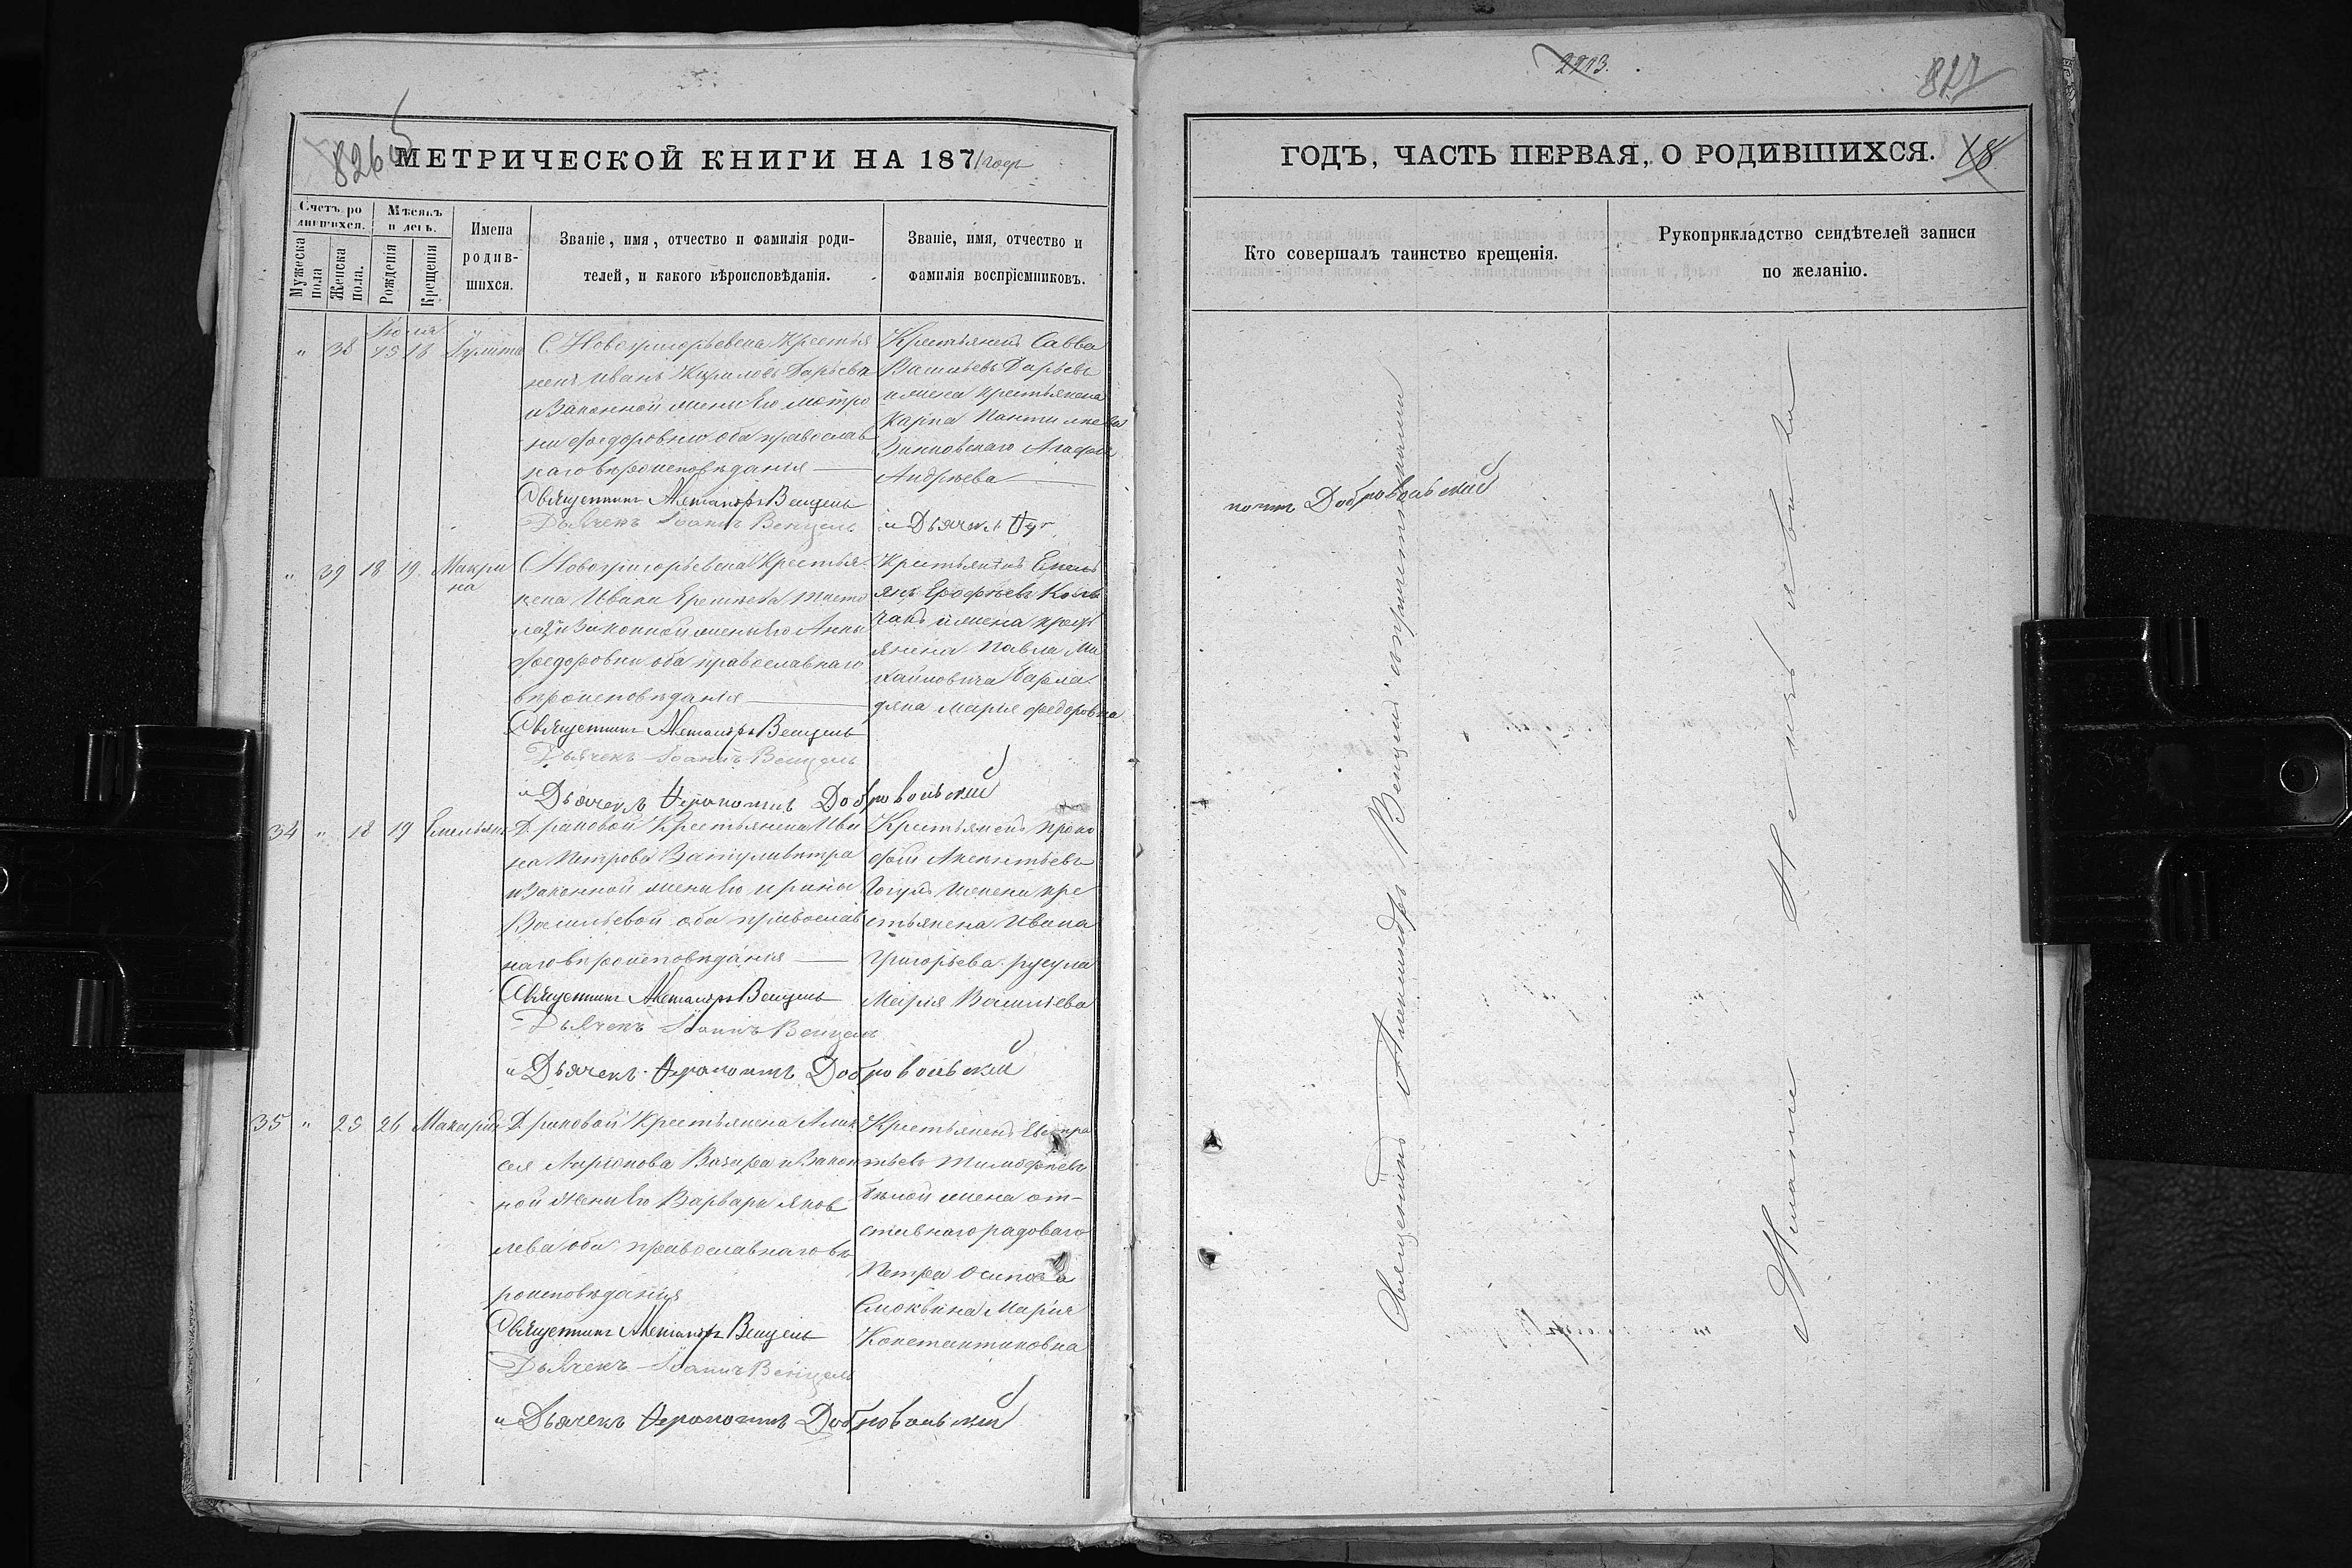 826
МЕТРИЧЕСКОЙ КНИГИ НА 1871 годъ
Счетъ родившихся.
Мужеска пола
Женска пола.
Мѣсяцъ и день.
Рожденія
Крещенія
Имена родившихся.
Званіе, имя, отчество и фамилія роди-
телей, и какого вѣроисповѣданія.
Званіе, имя, отчество и
фамилія воспріемниковъ.
Іюля
„ 38 15 18
С Новогригорьевка Крестья
ненъ Иванъ Кириловъ Дарьева
и Законной жены Его Мотро
ни Федоровны оба православ
наго вѣроисповѣданія
Священникъ Александръ Венцель
Дьячекъ Іоаннъ Венцель
Крестьянинъ Савва
Васильевъ Дарьевъ
и жена крестьянина
Карпа
Зинковскаго Агафія
Андрѣева
и Дьячекъ
„ 39 18 19 Макри
на
С Новогригорьевка Крестья
нена Ивана
и Законной жены Его Анны
Федоровны оба православнаго
вѣроисповѣданія
Священникъ Александръ Венцель
Дьячекъ Іоаннъ Венцель
и Дьячекъ Ферапонтъ Добровольскій
Крестьянинъ Емель
янъ Ерофѣевъ Колъ
чакъ и жена крест
янина Павла Ми
хайловича Варла
дяна Марія Федоровна
34 „ 18 19 Емельянъ
Д. раковой Крестьянена Ива
на Петрова
и Законной жены Его Ирины
Васильевой оба православ
наго вѣроисповѣданія
Священникъ Александръ Венцель
Дьячекъ Іоаннъ Венцель
и Дьячекъ Ферапонтъ Добровольскій
Крестьянинъ Проко
фій
и жена кре
стьянена Ивана
Григорьева русула
Марія Васильева
35 „ 25 26 Макарій
Д. раковой Крестьянена Алек
сея Ларіонова и Закон
ной Жены Его Варвары Яков
лева оба православнаго вѣ
роисповѣданія
Священникъ Александръ Венцель
Дьячекъ Іоаннъ Венцель
и Дьячекъ Ферапонтъ Добровольскій
Крестьянинъ
Тимофѣевъ
Бѣлой жена от-
ставнаго радоваго
Петра Осипова
Смоквина Марія
Константиновна
2213.
827
ГОДЪ, ЧАСТЬ ПЕРВАЯ, О РОДИВШИХСЯ.
Кто совершалъ таинство крещенія.
Рукоприкладство свидѣтелей записи
по желанію.
понтъ Добровольскій
Священникъ Александръ Венцель съ причетниками
Желаніе не изъявили